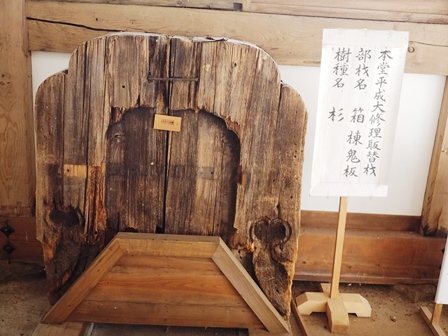 本堂平成大修理取替材
部材名 箱棟鬼板
樹種名 杉